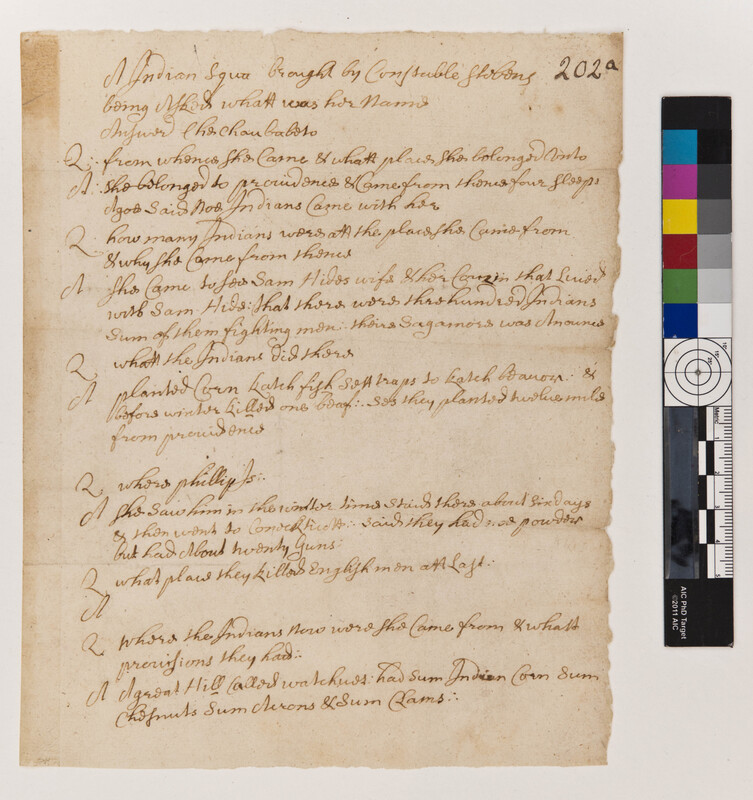 202a
A Indian Squa brought by Constable Stebens
being Asked whatt was her Name
Answer Chechaubabeto
Q: from whence she Came & whatt place she belonged Unto
A: she belonged to providence & Came from thence four sleeps
Agoe Said Noe Indians Came with her
Q how many Indians were att the place she Came from
& why she Came from thence
A she Came to see Sam Hides wife & her Couzin that Lived
with Sam Hide: that there were thre hundred Indians
Sum of them fighting men: theire Sagamore was
Q whatt the Indians did there
A planted Corn katch fish Sett traps to katch beavour: &
before winter killed one beaf: Ses they planted twelve mile
from providence
Q where phillip Is:
A She Saw him in the winter time Staid there about Six days
& then went to Coneckticott: said they had noe powder
but had About twenty Guns:
Q what place they killed English men att Last:
A
Q where the Indians Now were she Came from & whatt
provisions they had:
A A great Hill Called watchues: had Sum Indian Corn Sum
Chesnuts Sum Acrons & Sum Clams:
AIC PhD Target
©2011 AIC